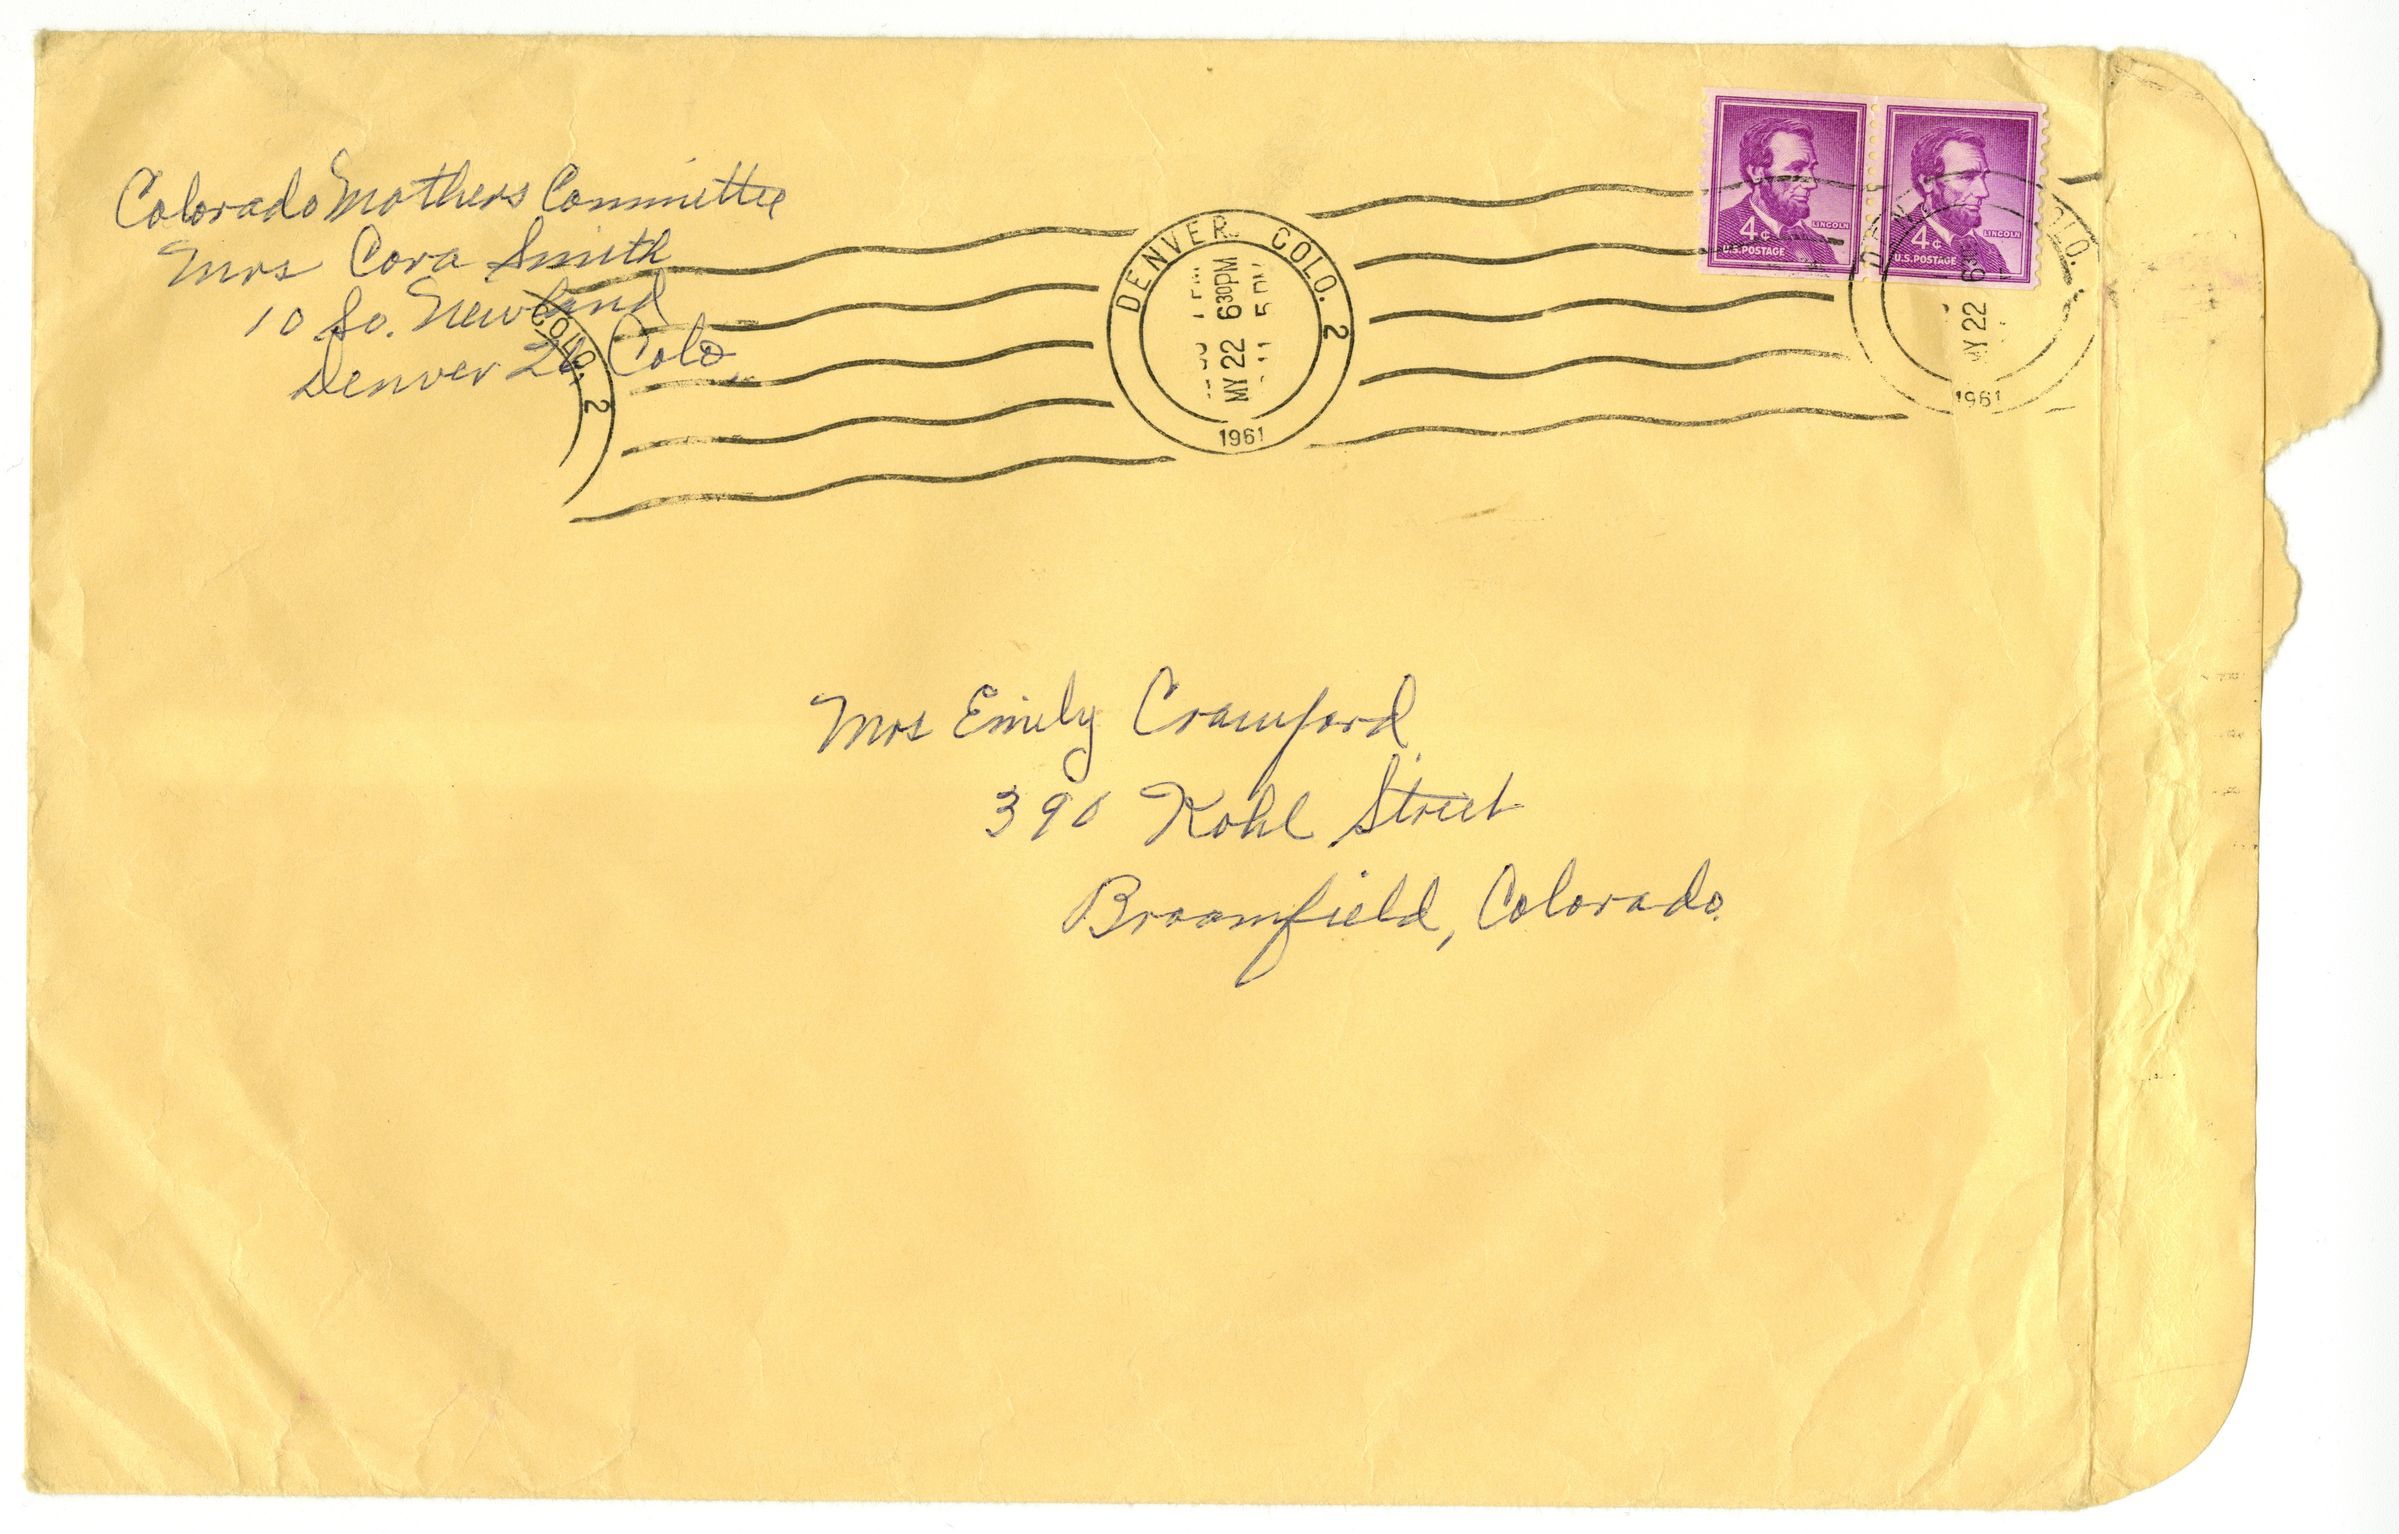 Colorado Mothers Committee
Mrs Cora Smith
10 So. Newland
Denver 26, Colo.
COLO. 2
DENVER, COLO. 2
MY 22 630PM
1961
4¢ LINCOLN
U.S. POSTAGE
4¢ LINCOLN
U.S. POSTAGE
COLO.
MY 22
1961
Mrs Emily Crawford
390 Kohl Street
Broomfield, Colorado.